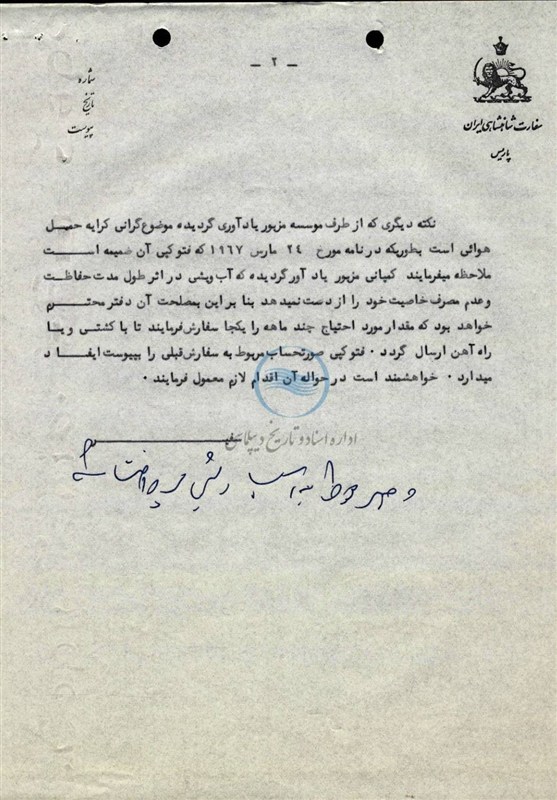 — ۲ —
سفارت شاهنشاهی ایران
پاریس
شماره
تاریخ
پیوست
نکته دیگری که از طرف موسسه مزبور یادآوری گردیده موضوع گرانی کرایه حمل
هوائی است بطوریکه در نامه مورخ ۲۴ مارس ۱۹۶۷ که فتوکپی آن ضمیمه است
ملاحظه میفرمایند کمپانی مزبور یاد آور گردیده که آب ویشی در اثر طول مدت حفاظت
وعدم مصرف خاصیت خود را از دست نمیدهد بنا بر این بمصلحت آن دفتر محترم
خواهد بود که مقدار مورد احتیاج چند ماهه را یکجا سفارش فرمایند تا با کشتی و یا
راه آهن ارسال گردد ۰ فتوکپی صورتحساب مربوط به سفارش قبلی را بپیوست ایفا د
میدارد ۰ خواهشمند است در حواله آن اقدام لازم معمول فرمایند ۰
سفیر
اداره اسناد و تاریخ دیپلماسی